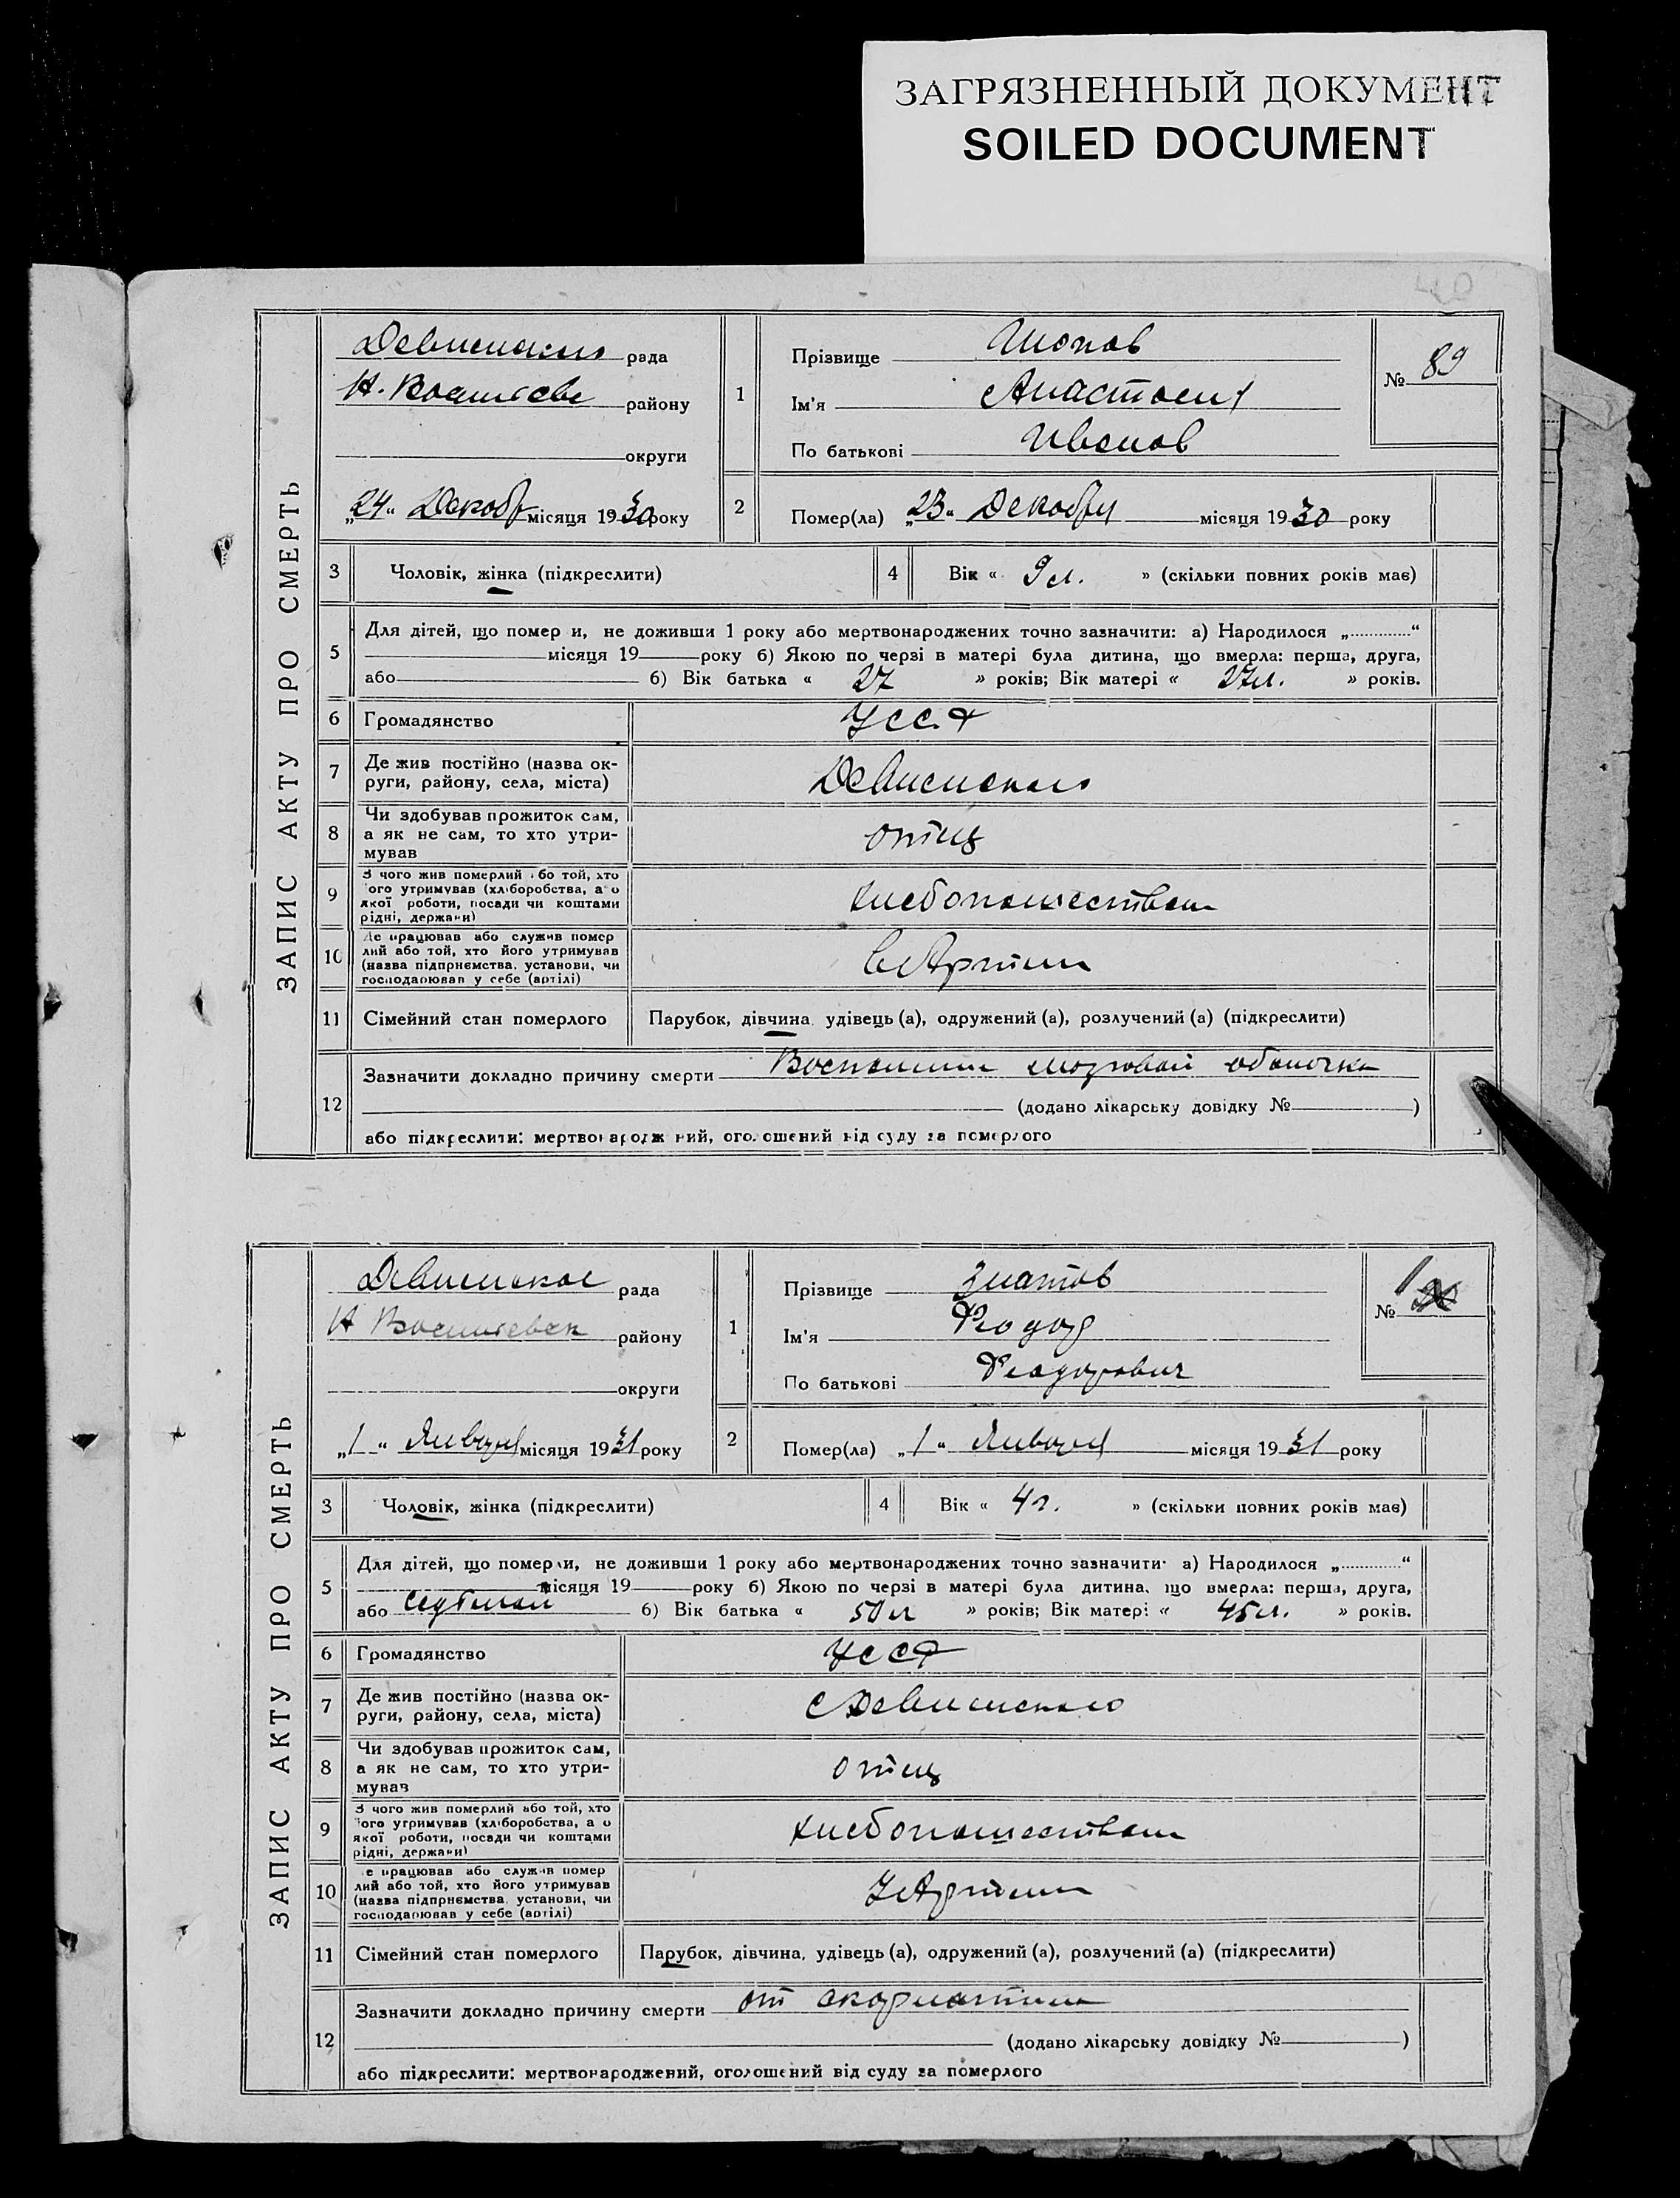 ЗАГРЯЗНЕННЫЙ ДОКУМЕНТ
SOILED DOCUMENT
ЗАПИС АКТУ ПРО СМЕРТЬ
рада
району
округи
„24“ Декабр місяця 1930 року
1
Прізвище
Ім'я Анастасия
По батькові Иванов
№ 89
2
Помер(ла) „23“ Декабря місяця 1930 року
3 Чоловік, жінка (підкреслити)
4 Вік « 9 л. » (скільки повних років має)
5 Для дітей, що помер и, не доживши 1 року або мертвонароджених точно зазначити: а) Народилося „ “
місяця 19 року б) Якою по черзі в матері була дитина, що вмерла: перша, друга,
або б) Вік батька « 27 » років; Вік матері « 27 л. » років.
6 Громадянство УССР
7 Де жив постійно (назва ок-
руги, району, села, міста)
8 Чи здобував прожиток сам,
а як не сам, то хто утри-
мував
отец
9 З чого жив померлий або той, хто
його утримував (хліборобства, або
якої роботи, посади чи коштами
рідні, держави)
хлебопашеством
10 Де працював або служив помер
лий або той, хто його утримував
(назва підприємства, установи, чи
господарював у себе (артілі)
в Артели
11 Сімейний стан померлого Парубок, дівчина, удівець (а), одружений (а), розлучений (а) (підкреслити)
12 Зазначити докладно причину смерти Воспаления мозговой оболочки
(додано лікарську довідку № )
або підкреслити: мертвонароджений, оголошений від суду за померлого
ЗАПИС АКТУ ПРО СМЕРТЬ
рада
району
округи
„1“ Января місяця 1931 року
1
Прізвище Златов
Ім'я Феодор
По батькові Феодорович
№ 1
2
Помер(ла) „1“ Января місяця 1931 року
3 Чоловік, жінка (підкреслити)
4 Вік « 4 г. » (скільки повних років має)
5 Для дітей, що померли, не доживши 1 року або мертвонароджених точно зазначити: а) Народилося „ “
місяця 19 року б) Якою по черзі в матері була дитина, що вмерла: перша, друга,
або седьмой б) Вік батька « 50 л » років; Вік матері « 45 л. » років.
6 Громадянство УССР
7 Де жив постійно (назва ок-
руги, району, села, міста)
8 Чи здобував прожиток сам,
а як не сам, то хто утри-
мував
отец
9 З чого жив померлий або той, хто
його утримував (хліборобства, або
якої роботи, посади чи коштами
рідні, держави)
хлебопашеством
10 Де працював або служив помер
лий або той, хто його утримував
(назва підприємства, установи, чи
господарював у себе (артілі)
У Артели
11 Сімейний стан померлого Парубок, дівчина, удівець (а), одружений (а), розлучений (а) (підкреслити)
12 Зазначити докладно причину смерти от скарлатини
(додано лікарську довідку № )
або підкреслити: мертвонароджений, оголошений від суду за померлого